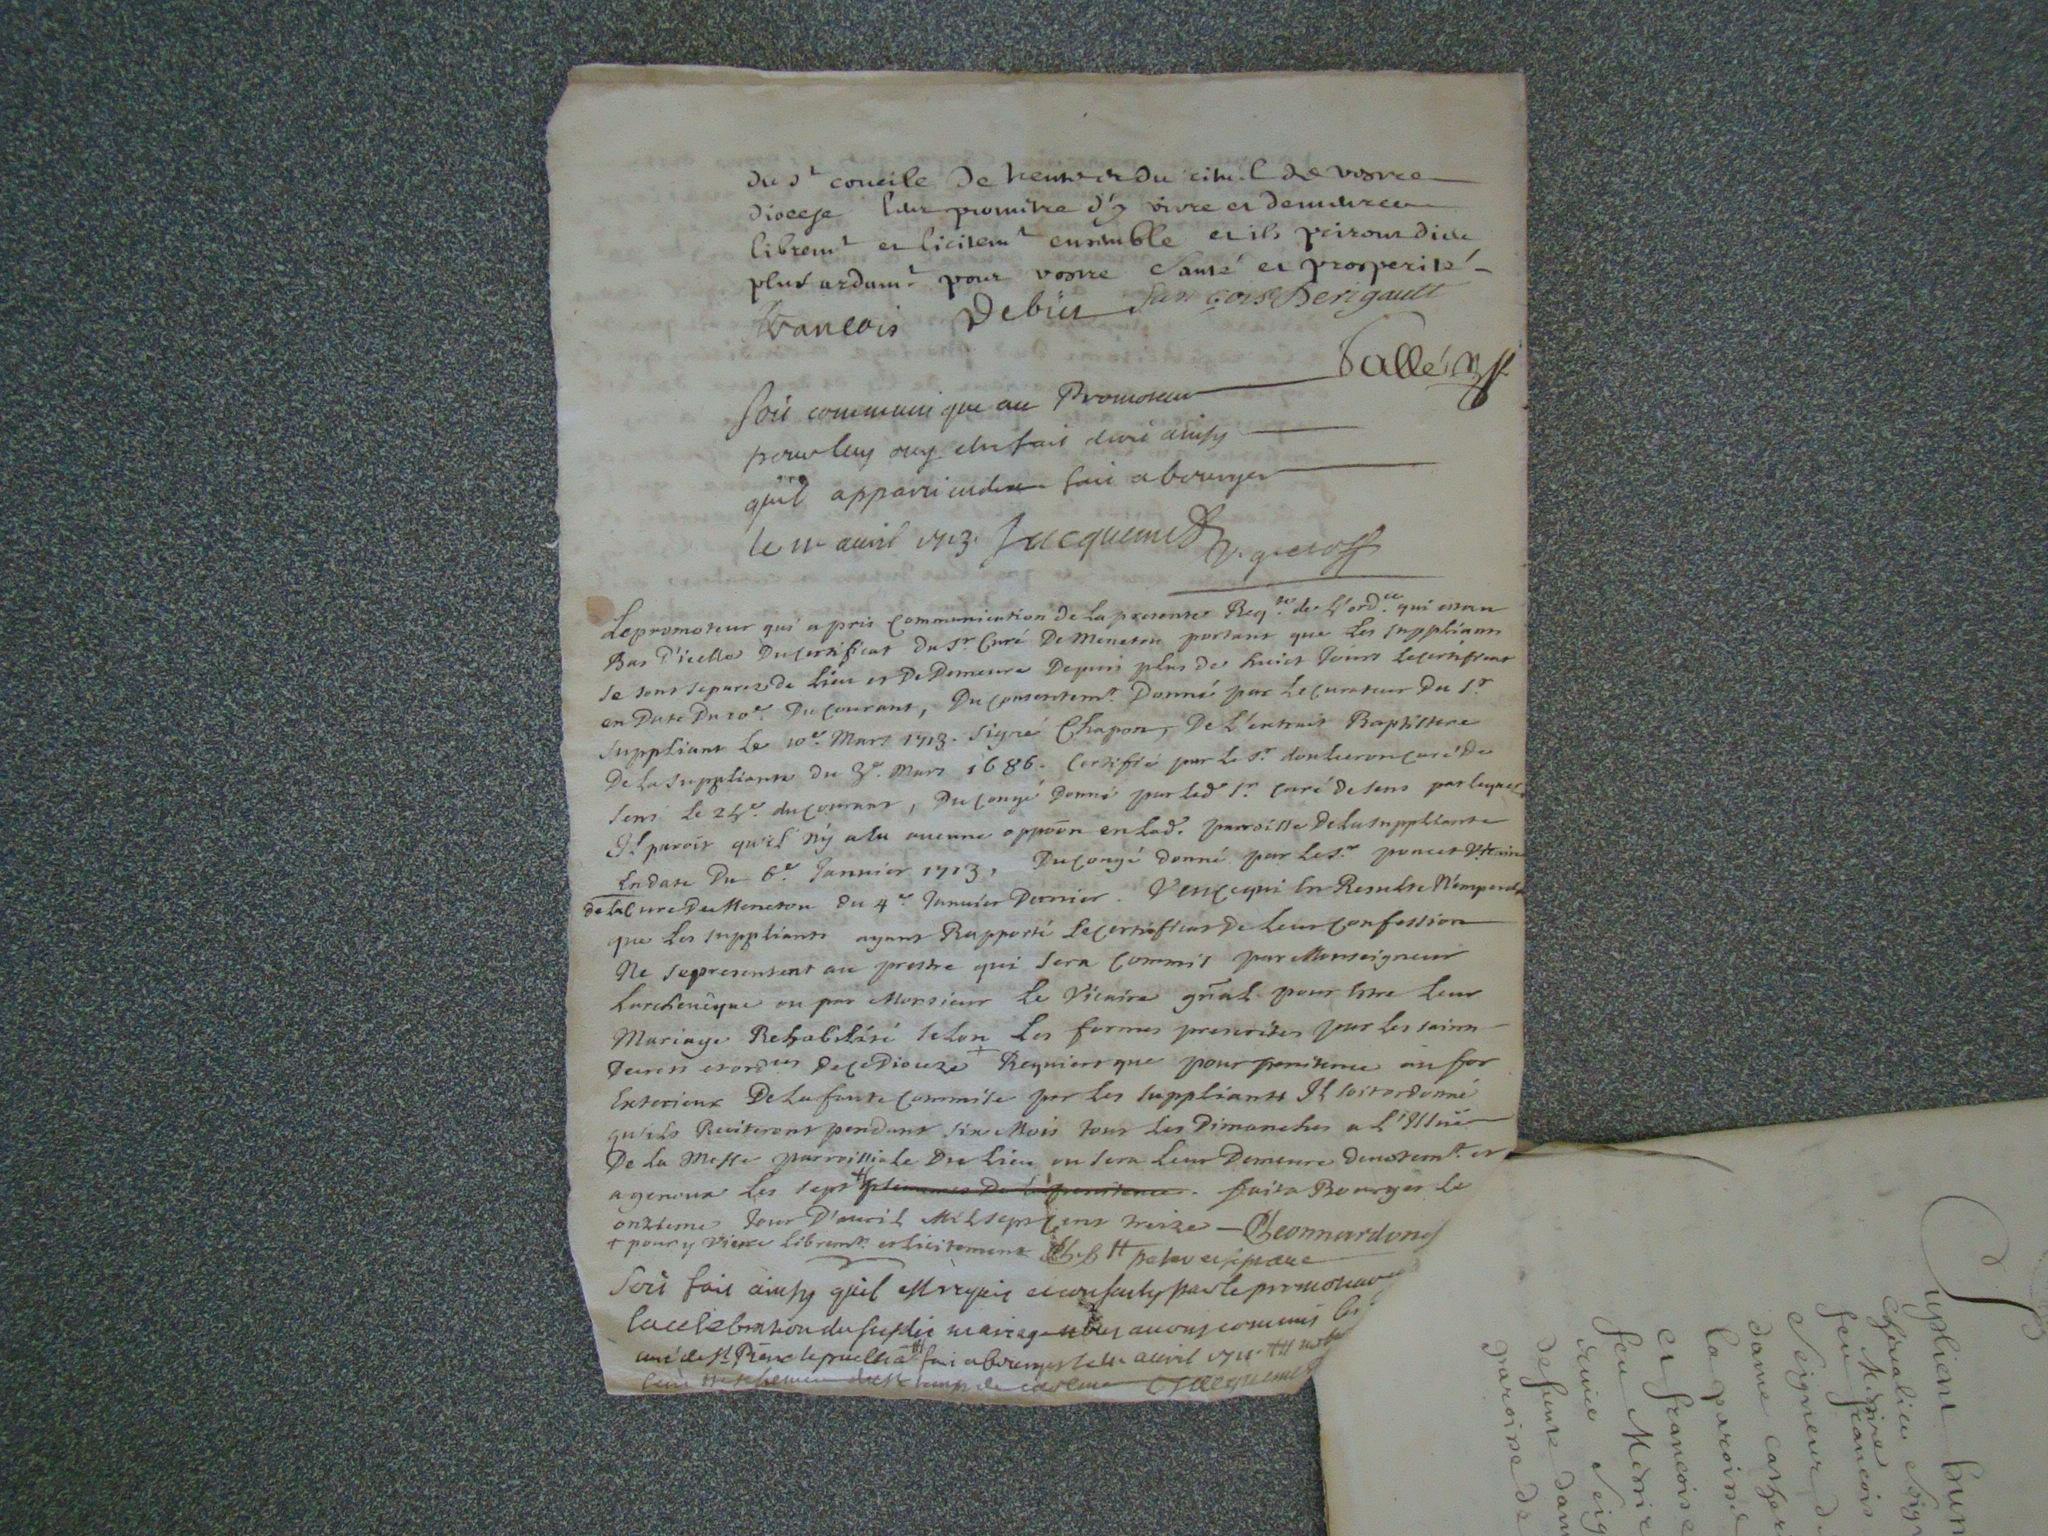 du st concile de trente et du rituel de vostre
diocese leur promttre d'y vivre et demeurer
libremt et licitemt ensemble et ils priront dieu
plus ardamt pour vostre santé et prosperité
francois Debiet francoise Berigault
Sallé
soit communique au Promoteur
pour luy ouy estre fait droit ainsy
quil appartiendra fait a bourges
le 11e auril 1713. Jacquemet
V. g.
Le promoteur qui a pris communication de la presente Reqte. de L'ordce. qui est au
Bas d'icelle Du certificat du Sr Curé De Meneton portant que les suppliants
se sont separez de Lieu et De Demeure Depuis plus de huict Jours Le certificat
en Date Du 10e. Du courant, Du consentemt. Donné par Le curateur Du Sr.
suppliant Le 10e. Mars 1713. signé Chapon, De L'extrait Baptistere
De La suppliante du 3e. Mars 1686. Certifié par le Sr. curé de
sens Le 24e. du courant, Du congé Donné par led. Sr. curé de sens par lequel
Il paroit qu'il n'y a eu aucune oppõon en Lad. parroisse De La suppliante
En date Du 6e. Janvier 1713, Du congé donné par Le Sr. poncet Vicaire
de la Cure De Meneton du 4e. Janvier Dernier. Veu ce qui en Resulte N'empeche
que Les suppliants ayant Rapporté Le certificat De Leur confession
Ne se presentent au prestre qui sera commis par Monseigneur
Larcheuêque ou par Monsieur Le Vicaire gñal pour estre Leur
Mariage Rehabilité selon Les formes prescrites par les saints
Decrets et ordces De ce Dioceze + Requiert que pour penitence au for
Exterieur De La faute commise par les suppliants Il soit ordonné
qu'ils Reciteront pendant six Mois tous Les Dimanches a L'Issuë
De La Messe parroissiale Du Lieu ou sera Leur Demeure devotemt. et
a genoux Les sept # pseaumes De la penitence. fait a Bourges Le
onzieme Jour D'avril Mil sept Cent treize — Leonnardon
+ pour y vivre libremt. et licitement # pater et
Soit fait ainsy quil est requis et consenty par le promoteur
la celebration du susdit mariage nous auons commis
curé de St. Pierre le fait a bourges le auril
temps de Jacquemet
Suplient hum
Chevalier Seig
Messire
feu francois
Seigneur de
dame cather
la paroisse
et francoise
feu Messire
Seig
defunte dam
paroisse de